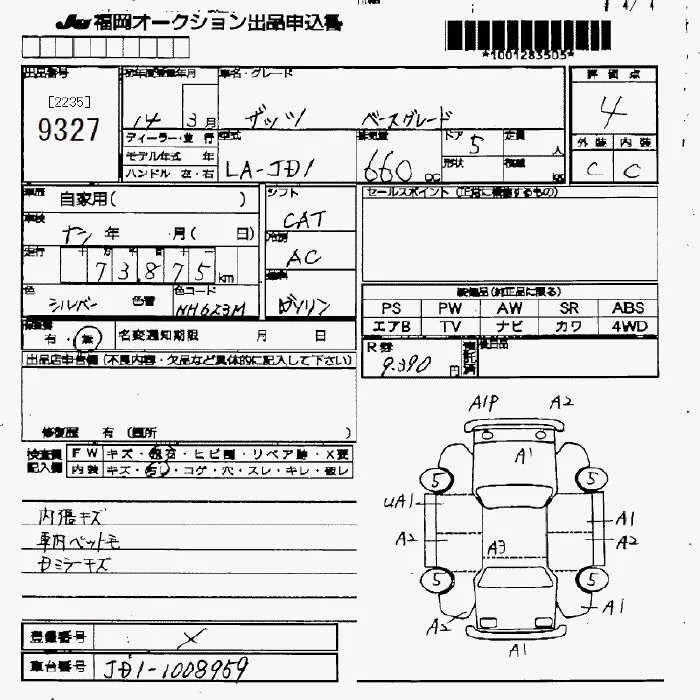 JU 福岡オークション出品申込書
*1001283505*
出品番号
[2235]
9327
初年度登録年月
14 3月
車名・グレード
ザッツ ベースグレード
評価点
4
外装 内装
C C
ディーラー・並行
モデル年式 年
ハンドル 左・右
型式
LA-JD1
排気量
660 cc
ドア 5
形状
定員 人
積載 kg
車歴
自家用( )
車検
ナシ 年 月( 日)
走行
十 万 千 百 十 一
73,875 km
色
シルバー
色替
色コード
NH623M
シフト
CAT
冷房
AC
燃料
ガソリン
セールスポイント(正常に機能するもの)
装備品(純正品に限る)
PS PW AW SR ABS
エアB TV ナビ カワ 4WD
R券
9,390円
後日品
有・無
名変通知期限 月 日
出品店申告欄(不良内容・欠品など具体的に記入して下さい)
修復歴 有(箇所 )
検査員記入欄
FW キズ・飛石・ヒビ割・リペア跡・X要
内装 キズ・汚レ・コゲ・穴・スレ・キレ・破レ
内張キズ
車内ペット毛
Dミラーキズ
登録番号 X
車台番号 JD1-1008959
A1P A2
A1
5 5
UA1 A1
A2 A2
A3
5 5
A2 A1
A1